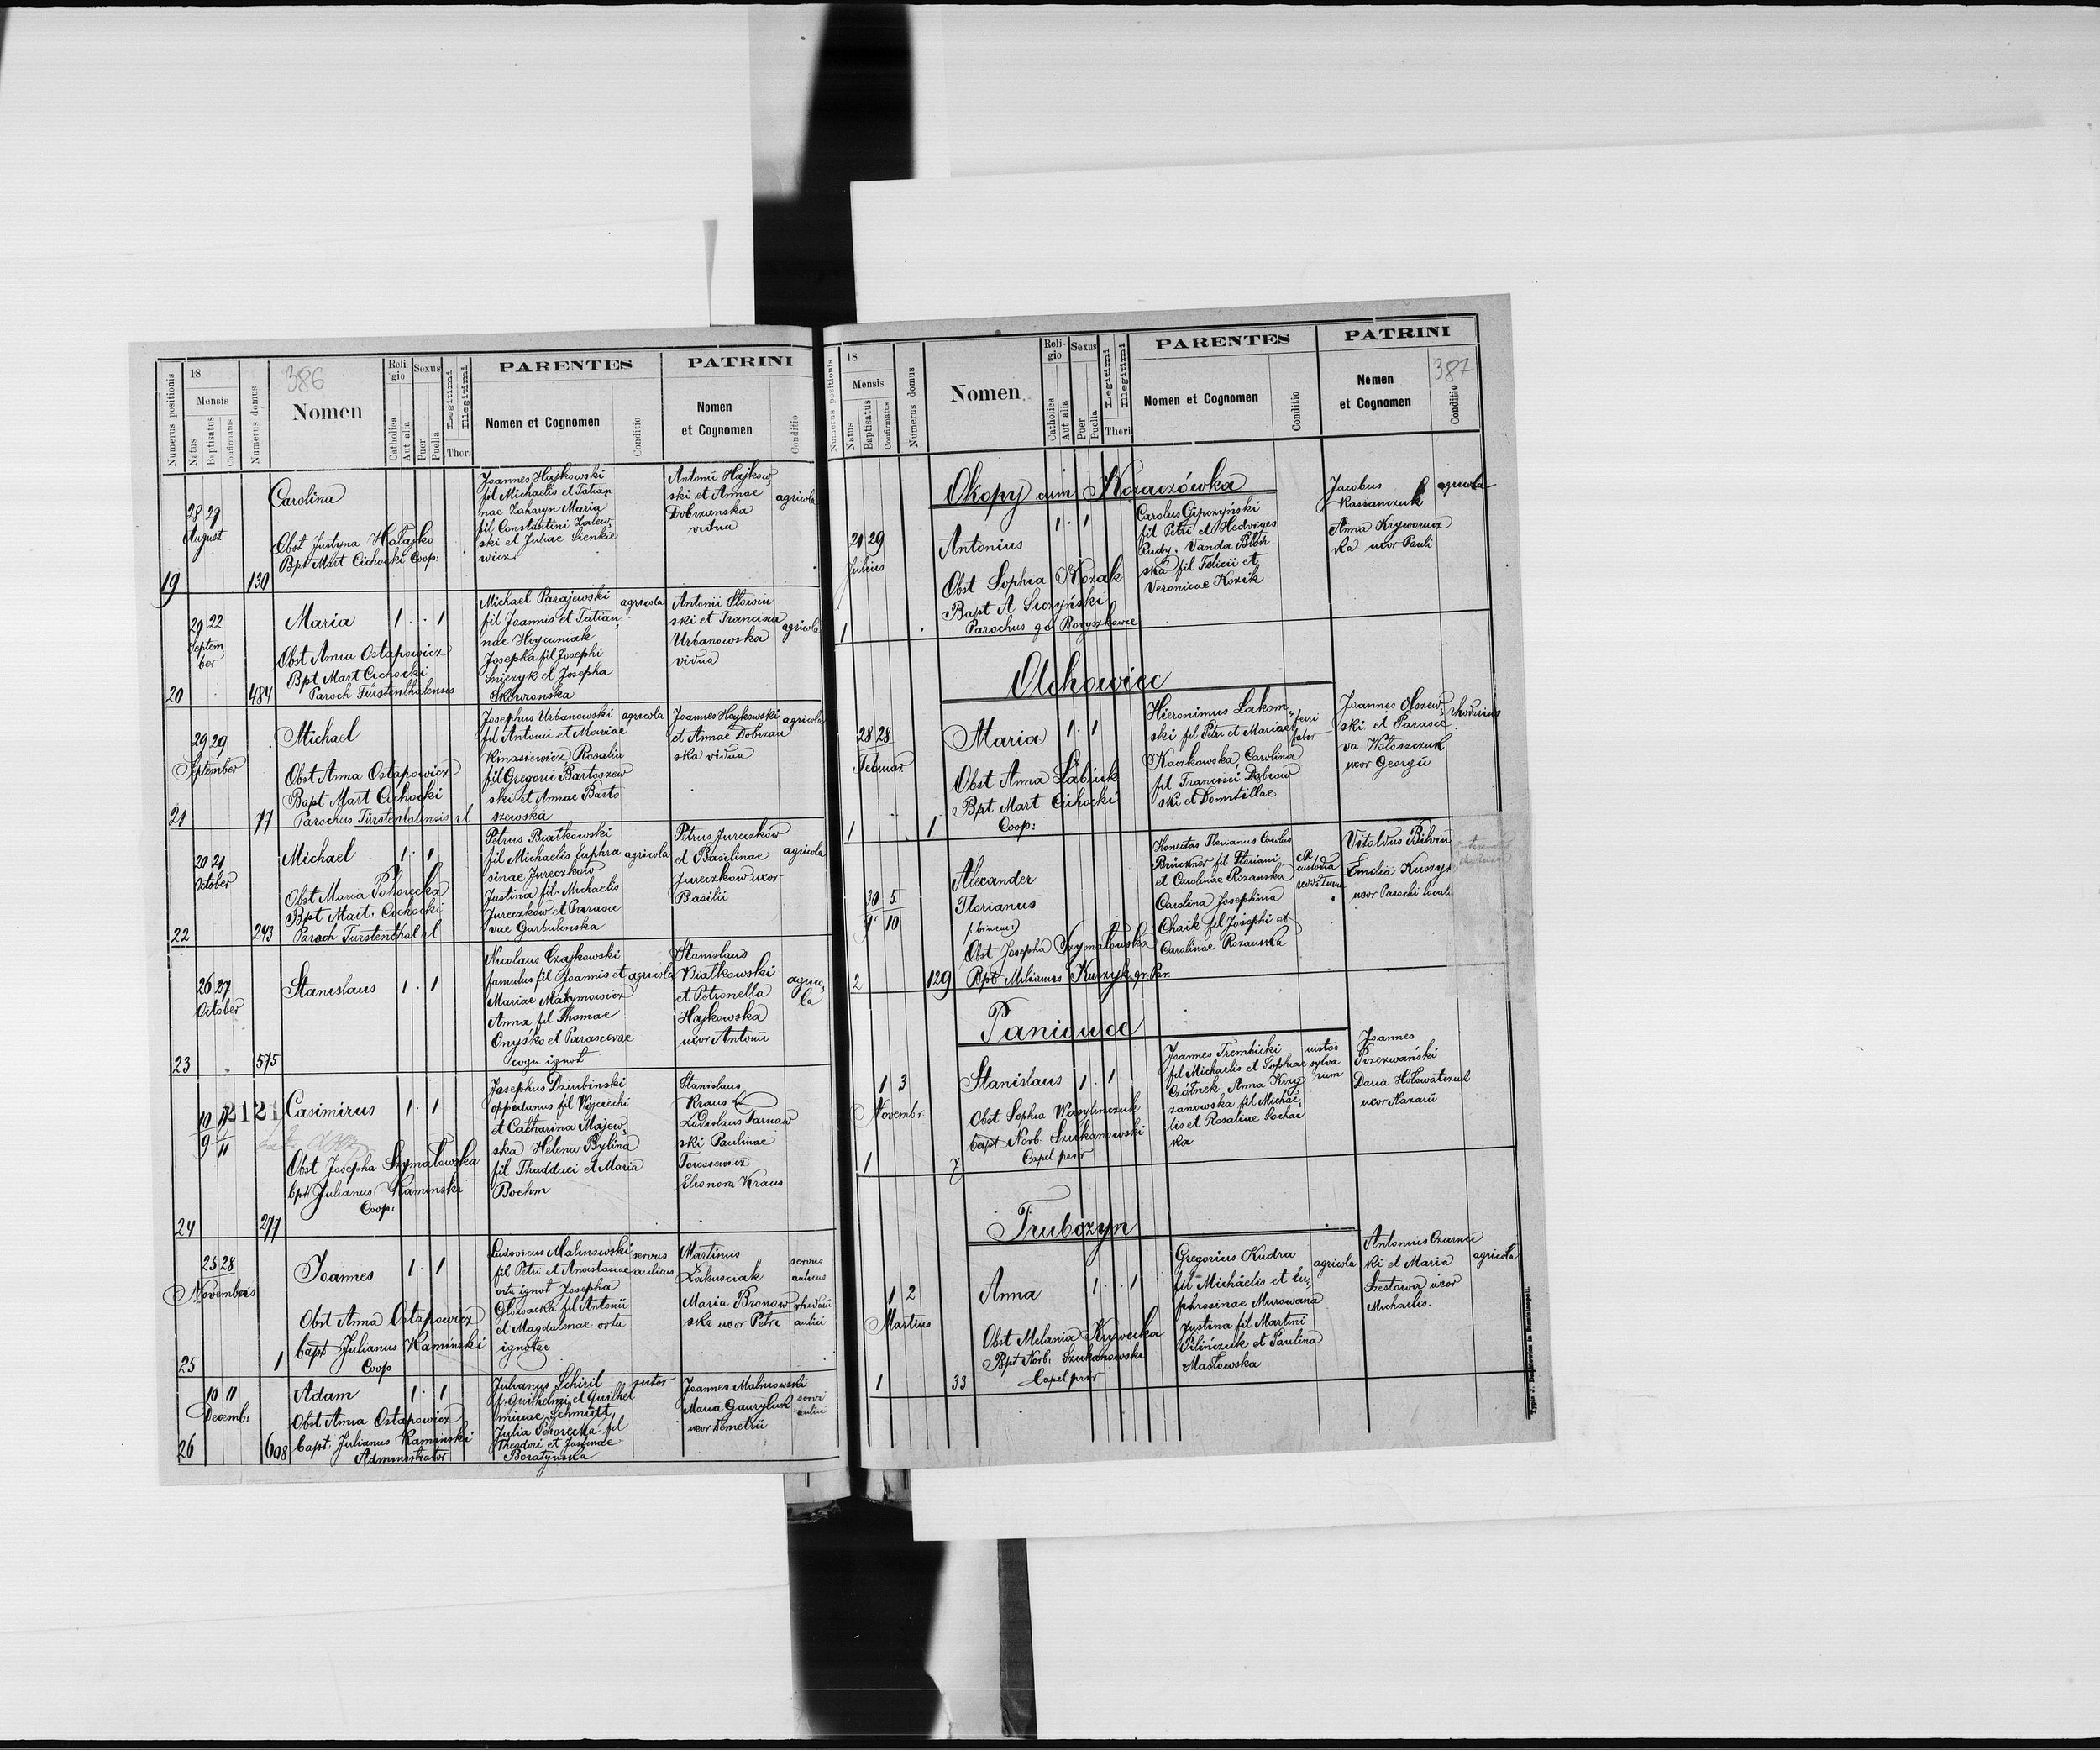 386
Numerus positionis
18
Mensis
Natus
Baptisatus
Confirmatus
Numerus domus
Nomen
Religio
Catholica
Aut alia
Sexus
Puer
Puella
Legitimi
Illegitimi
Thori
PARENTES
Nomen et Cognomen
Conditio
PATRINI
Nomen
et Cognomen
Conditio
19
28 29
August
130
Carolina
Obst Justyna Hałajko
Bpt Mart Cichocki Coop:
Joannes Hajkowski
fil Michaelis et Tatian
nae Zaharyn Maria
fil Constantini Zalew,
ski et Juliae Sienkie
wicz
Antonii Hajkow,
ski et Annae
Dobrzanska
vidua
agricola
20
20 22
Septem
ber
484
Maria
1 . . 1
Obst Anna Ostapowicz
Bpt Mart Cichocki
Paroch Fürstenthalensis
Michael Parajewski
fil Joannis et Tatian
nae Hrycuniak
Josepha fil Josephi
Snieżyk et Josepha
Skowronska
agricola
Antonii Słowin
ski et Francisca
Urbanowska
vidua
agricola
21
29 29
September
77
Michael
Obst Anna Ostapowicz
Bapt Mart Cichocki
Parochus Fürstentalensis rl
Josephus Urbanowski
fil Antonii et Mariae
Kinasiewicz Rosalia
fil Gregorii Bartoszew
ski et Annae Barto
szewska
agricola
Joannes Hajkowski
et Annae Dobrzan
ska vidua
agricola
22
20 21
October
243
Michael
1 . 1
Obst Maria Pohorecka
Bpt Mart. Cichocki
Paroch Furstenthal rl
Petrus Białkowski
fil Michaelis Euphra
sinae Jureczkow
Justina fil Michaelis
Jureczków et Parasce
vae Garbulinska
agricola
Petrus Jureczków
et Basilinae
Jureczkow uxor
Basilii
agricola
23
26 27
October
575
Stanislaus
1 . 1
Nicolaus Czajkowski
famulus fil Joannis et
Mariae Maxymowicz
Anna fil Thomae
Onyśko et Parascevae
cogn ignot
agricola
Stanislaus
Białkowski
et Petronella
Hajkowska
uxor Antonii
agrico,
la
24
10 11
9 11
2121
277
Casimirus
1 . 1
Obst Josepha Szymałowska
bpt Julianus Kaminski
Coop:
Josephus Dziubinski
oppidanus fil Wojciechi
et Catharina Majew,
ska Helena Bylina
fil Thaddaei et Maria
Boehm
Stanislaus
Kraus
Ladislaus Tarnaw
ski Paulinae
Torosiewicz
Eleonora Kraus
25
25 28
Novembris
1
Joannes
1 . 1
Obst Anna Ostapowicz
bapt Julianus Kamiński
Coop
Ludovicus Malinowski
fil Petri et Anastasiae
ortu ignot Josepha
Głowacka fil Antonii
et Magdalenae ortu
ignotae
servus
aulicus
Martinus
Łakusciak
Maria Bronow
ska uxor Petri
servus
aulicus
rhedarii
aulici
26
10 11
Decemb:
608
Adam
1 . 1
Obst Anna Ostapowicz
bapt. Julianus Kaminski
Administrator
Julianus Schirit
f. Guilhelmi et Guilhel
minae Schmidt
Julia Pohorecka fil
Theodori et Justinae
Boratyńska
sutor
Joannes Malinowski
Maria Gauryluk
uxor Demetrii
servi
aulici
387
Numerus positionis
18
Mensis
Natus
Baptisatus
Confirmatus
Numerus domus
Nomen
Religio
Catholica
Aut alia
Sexus
Puer
Puella
Legitimi
Illegitimi
Thori
PARENTES
Nomen et Cognomen
Conditio
PATRINI
Nomen
et Cognomen
Conditio
Okopy cum Kozaczówka
1
21 29
Julius
Antonius
1 . 1
Obst Sophia Kozak
Bapt A
Parochus gr
Carolus Gipczyński
fil Petri et Hedviges
Rudy. Vanda
ska fil Felicii et
Veronicae Kozik
Jacobus
Kassianczuk
Anna Kryworucz
ka uxor Pauli
agricola
Olchowiec
1
28 28
Februar
1
Maria
1 . 1
Obst Anna Łabiuk
Bpt Mart Cichocki
Coop:
Hieronimus Lakom
ski fil Petri et Mariae
Kaczkowska, Carolina
fil Francisci Dąbrow
ski et Domitillae
ferri
faber
Joannes Olszew,
ski et Parasce
va Wołoszczuk
uxor Georgii
rhedarius
2
30 5
9 10
129
Alexander
Florianus
(binom)
Obst Josepha Szymałowska
Bpt Milianus Kurzyk gr Par.
Honestas Florianus Carolus
Brückner fil Floriani
et Carolinae Rozanska
Carolina Josephina
Chaik fil Josephi et
Carolinae Rozanska
CR
custodia
Vitoldus
Emilia Kuszyk
uxor Parochi locali
Paniowce
1
1 3
Novembr.
7
Stanislaus
1 . 1
Obst Sophia Wasylinczuk
bapt Norb: Szukanowski
Capel prov
Joannes Trembicki
fil Michaelis et Sophiae
Czółnek Anna Krzy
żanowska fil Michae
lis et Rosaliae Sochac
ka
custos
sylva
rum
Joannes
Przerwański
Daria Hołowatczuk
uxor Nazarii
Trubczyn
1
1 2
Martius
33
Anna
1 . . 1
Obst Melania Krywecka
Bpt Norb: Szukanowski
Capel prov
Gregorius Kudra
fil Michaelis et Eu,
phrosinae Murowana
Justina fil Martini
Pilińczuk et Paulina
Masłowska
agricola
Antonius Czarnec
ki et Maria
Szestowa uxor
Michaelis.
agricola